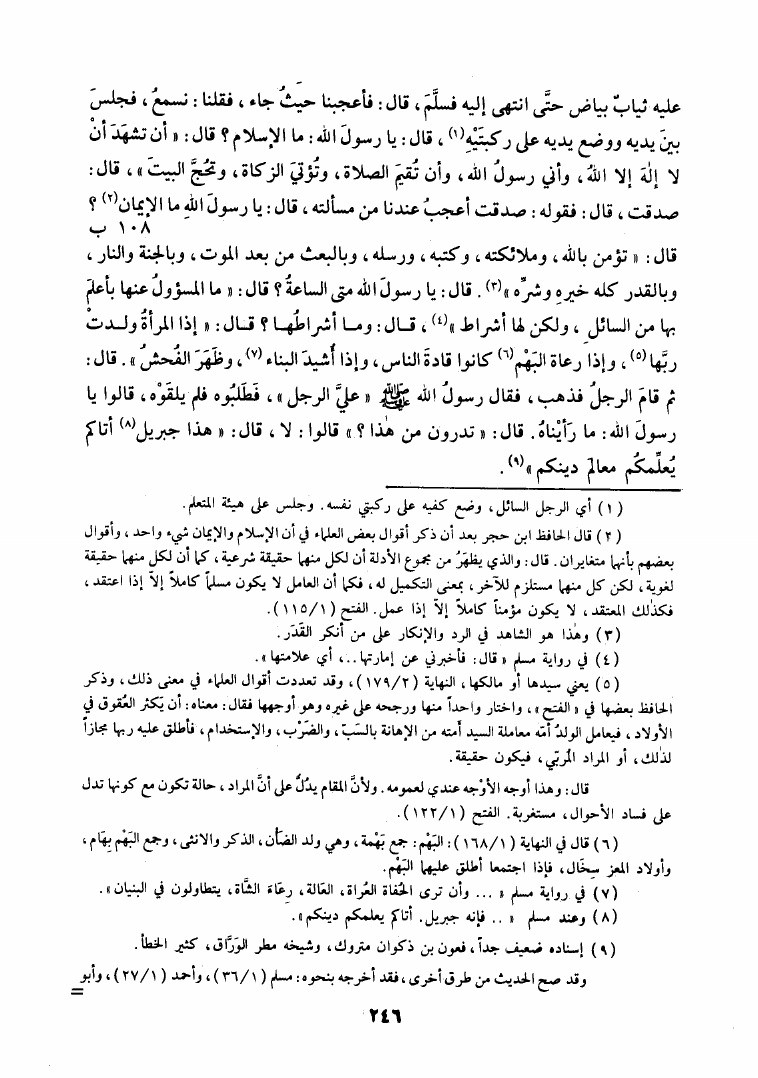 عليه ثيابٌ بياض حتَّى انتهى إليه فسلَّمَ ، قال : فأعجبنا حيثُ جاء ، فقلنا : نسمعُ ، فجلسَ
بينَ يديه ووضع يديه على ركبتَيْهِ (١) ، قال : يا رسولَ الله : ما الإسلام ؟ قال : « أن تشهَدَ أنْ
لا إلٰهَ إلا اللهُ ، وأني رسولُ الله ، وأن تُقيمَ الصلاة ، وتُؤتيَ الزكاة ، وتحُجَّ البيتَ » ، قال :
صدقت ، قال : فقوله : صدقت أعجبُ عندنا من مسألته ، قال : يا رسولَ اللهِ ما الإيمان (٢) ؟
١٠٨ ب
قال : « تؤمن بالله ، وملائكته ، وكتبه ، ورسله ، وبالبعث من بعد الموت ، وبالجنة والنار ،
وبالقدر كله خيرِهِ وشرِّه » (٣) . قال : يا رسولَ الله متى الساعةُ ؟ قال : « ما المسؤولُ عنها بأعلمَ
بها من السائلِ ، ولكن لها أشراط » (٤) ، قـال : ومـا أشراطُهـا ؟ قـال : « إذا المرأةُ ولـدتْ
ربَّها (٥) ، وإذا رعاة البَهْم (٦) كانوا قادةَ الناس ، وإذا أُشيدَ البناء (٧) ، وظَهَرَ الفُحشُ » . قال :
ثم قامَ الرجلُ فذهب ، فقال رسولُ الله ﷺ « عليَّ الرجل » ، فَطَلَبُوه فلم يلقَوْه ، قالوا يا
رسولَ الله : ما رَأَيْناهُ . قال : « تدرون من هٰذا ؟ » قالوا : لا ، قال : « هذا جبريل (٨) أتاكم
يُعلِّمكُم معالمَ دينكم » (٩) .
(١) أي الرجل السائل ، وضع كفيه على ركبتي نفسه . وجلس على هيئة المتعلم .
(٢) قال الحافظ ابن حجر بعد أن ذكر أقوال بعض العلماء في أن الإسلام والإيمان شيء واحد ، وأقوال
بعضهم بأنها متغايران . قال : والذي يظهَرُ من مجموع الأدلة أن لكل منهما حقيقة شرعية ، كما أن لكل منهما حقيقة
لغوية ، لكن كل منهما مستلزم للآخر ، بمعنى التكميل له ، فكما أن العامل لا يكون مسلماً كاملاً إلاّ إذا اعتقد ،
فكذلك المعتقد ، لا يكون مؤمناً كاملاً إلاّ إذا عمل . الفتح (١/١١٥) .
(٣) وهٰذا هو الشاهد في الرد والإنكار على من أنكر القَدَر .
(٤) في رواية مسلم « قال : فأخبرني عن إمارتها .. ، أي علامتها » .
(٥) يعني سيدها أو مالكها ، النهاية (٢/١٧٩) ، وقد تعددت أقوال العلماء في معنى ذلك ، وذكر
الحافظ بعضها في « الفتح » ، واختار واحداً منها ورجحه على غيره وهو أوجهها فقال : معناه : أن يَكثر العُقوق في
الأولاد ، فيعامل الولدُ أمّه معاملة السيد أَمته من الإهانة بالسَبّ ، والضَرْب ، والإستخدام ، فأطلق عليه ربها مجازاً
لذلك ، أو المراد المُربّي ، فيكون حقيقة .
قال : وهذا أوجه الأوْجه عندي لعمومه . ولأنَّ المقام يدُلّ على أنَّ المراد ، حالة تكون مع كونها تدل
على فساد الأحوال ، مستغربة . الفتح (١/١٢٢) .
(٦) قال في النهاية (١/١٦٨) : البَهْم : جمع بَهْمة ، وهي ولد الضأن ، الذكر والانثى ، وجمع البَهْم بِهَام ،
وأولاد المعز سِخَال ، فإذا اجتمعا أطلق عليهما البَهْم .
(٧) في رواية مسلم « ... وأن ترى الحُفاة العُراة ، العَالة ، رِعَاءَ الشَّاة ، يتطاولون في البنيان » .
(٨) وعند مسلم « .. فإنه جبريل . أتاكم يعلمكم دينكم » .
(٩) إسناده ضعيف جداً ، فعون بن ذكوان متروك ، وشيخه مطر الوَرَّاق ، كثير الخطأ .
وقد صح الحديث من طرق أخرى ، فقد أخرجه بنحوه : مسلم (١/٣٦) ، وأحمد (١/٢٧) ، وأبو
=
٢٤٦